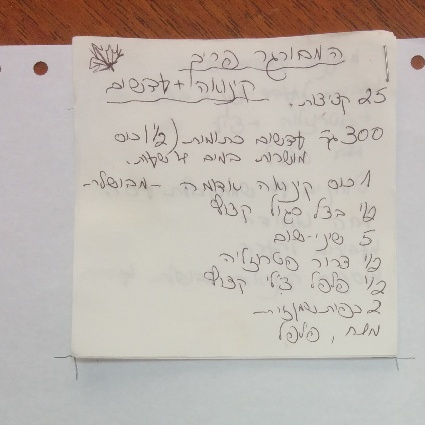 המבורגר פריך
קינואה + עדשים
25 קציצות.
300 גר' עדשים כתומות (1/2 1 כוס
מושרות במים שעות.
1 כוס קינואה אדומה - מבושלת -
1/2 בצל סגול קצוץ
5 שיני-שום
1/2 צרור פטרוזליה
1/2 פלפל צ'ילי קצוץ
2 כפות
מלח, פלפל